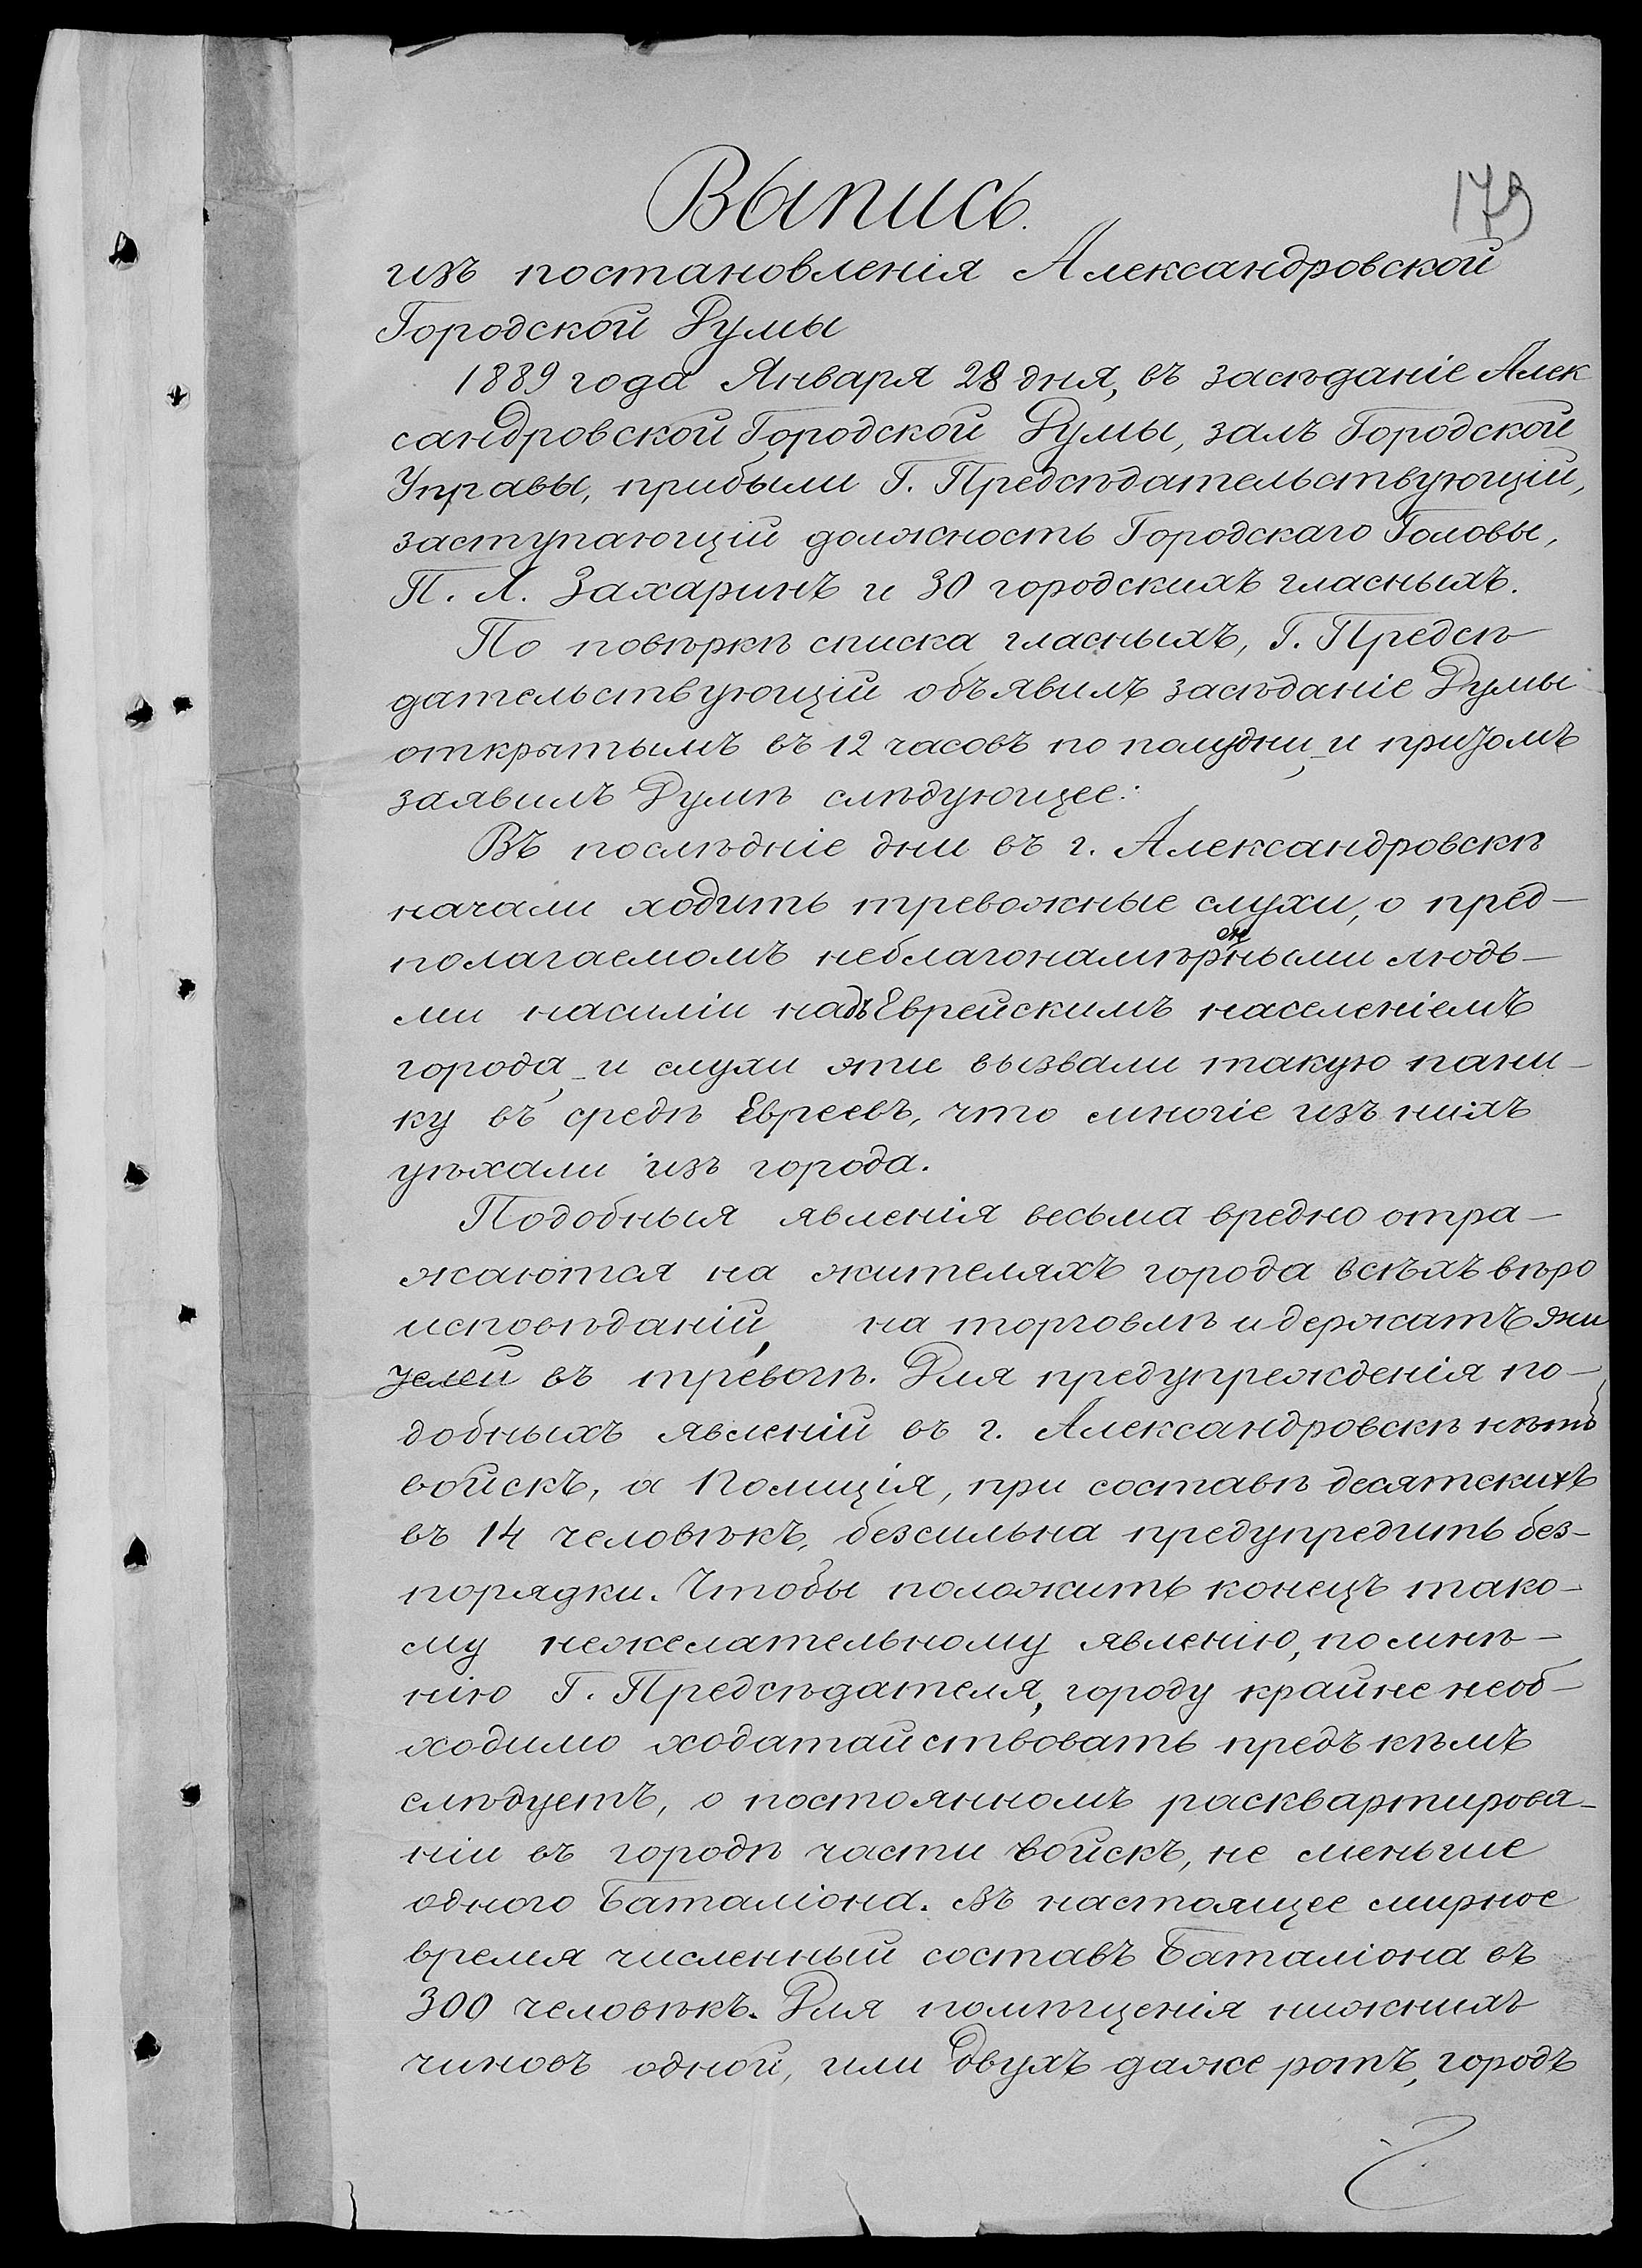 Выпись.
179
изъ постановленія Александровской
Городской Думы
1889 года Января 28 дня, въ засѣданіе Алек
сандровской Городской Думы, залъ Городской
Управы, прибыли Г. Предсѣдательствующій,
заступающій должность Городскаго Головы,
П. Л. Захаринъ и 30 городскихъ гласныхъ.
По повѣркѣ списка гласныхъ, Г. Предсѣ
дательствующій объявилъ засѣданіе Думы
открытымъ въ 12 часовъ по полудни, и при
заявилъ Думѣ слѣдующее:
Въ послѣдніе дни въ г. Александровскѣ
начали ходить тревожные слухи, о пред-
полагаемомъ неблагонамѣренными людь-
ми насиліи надъ Еврейскимъ населеніемъ
города, и слухи эти вызвали такую пани-
ку въ средѣ Евреевъ, что многіе изъ нихъ
уѣхали изъ города.
Подобныя явленія весьма вредно отра-
жаются на жителяхъ города всѣхъ вѣро
исповѣданій, на торговлѣ и держатъ жи
телей въ тревогѣ. Для предупрежденія по-
добныхъ явленій въ г. Александровскѣ нѣтъ
войскъ, а Полиція, при составѣ десятскихъ
въ 14 человѣкъ, безсильна предупредить без-
порядки. Чтобы положить конецъ тако-
му нежелательному явленію, по мнѣ-
нію Г. Предсѣдателя, городу крайне необ-
ходимо ходатайствовать предъ кѣмъ
слѣдуетъ, о постоянномъ расквартирова-
ніи въ городѣ части войскъ, не меньше
одного баталіона. Въ настоящее мирное
время численный составъ баталіона въ
300 человѣкъ. Для помѣщенія нижнихъ
чиновъ одной, или двухъ даже ротъ, городъ